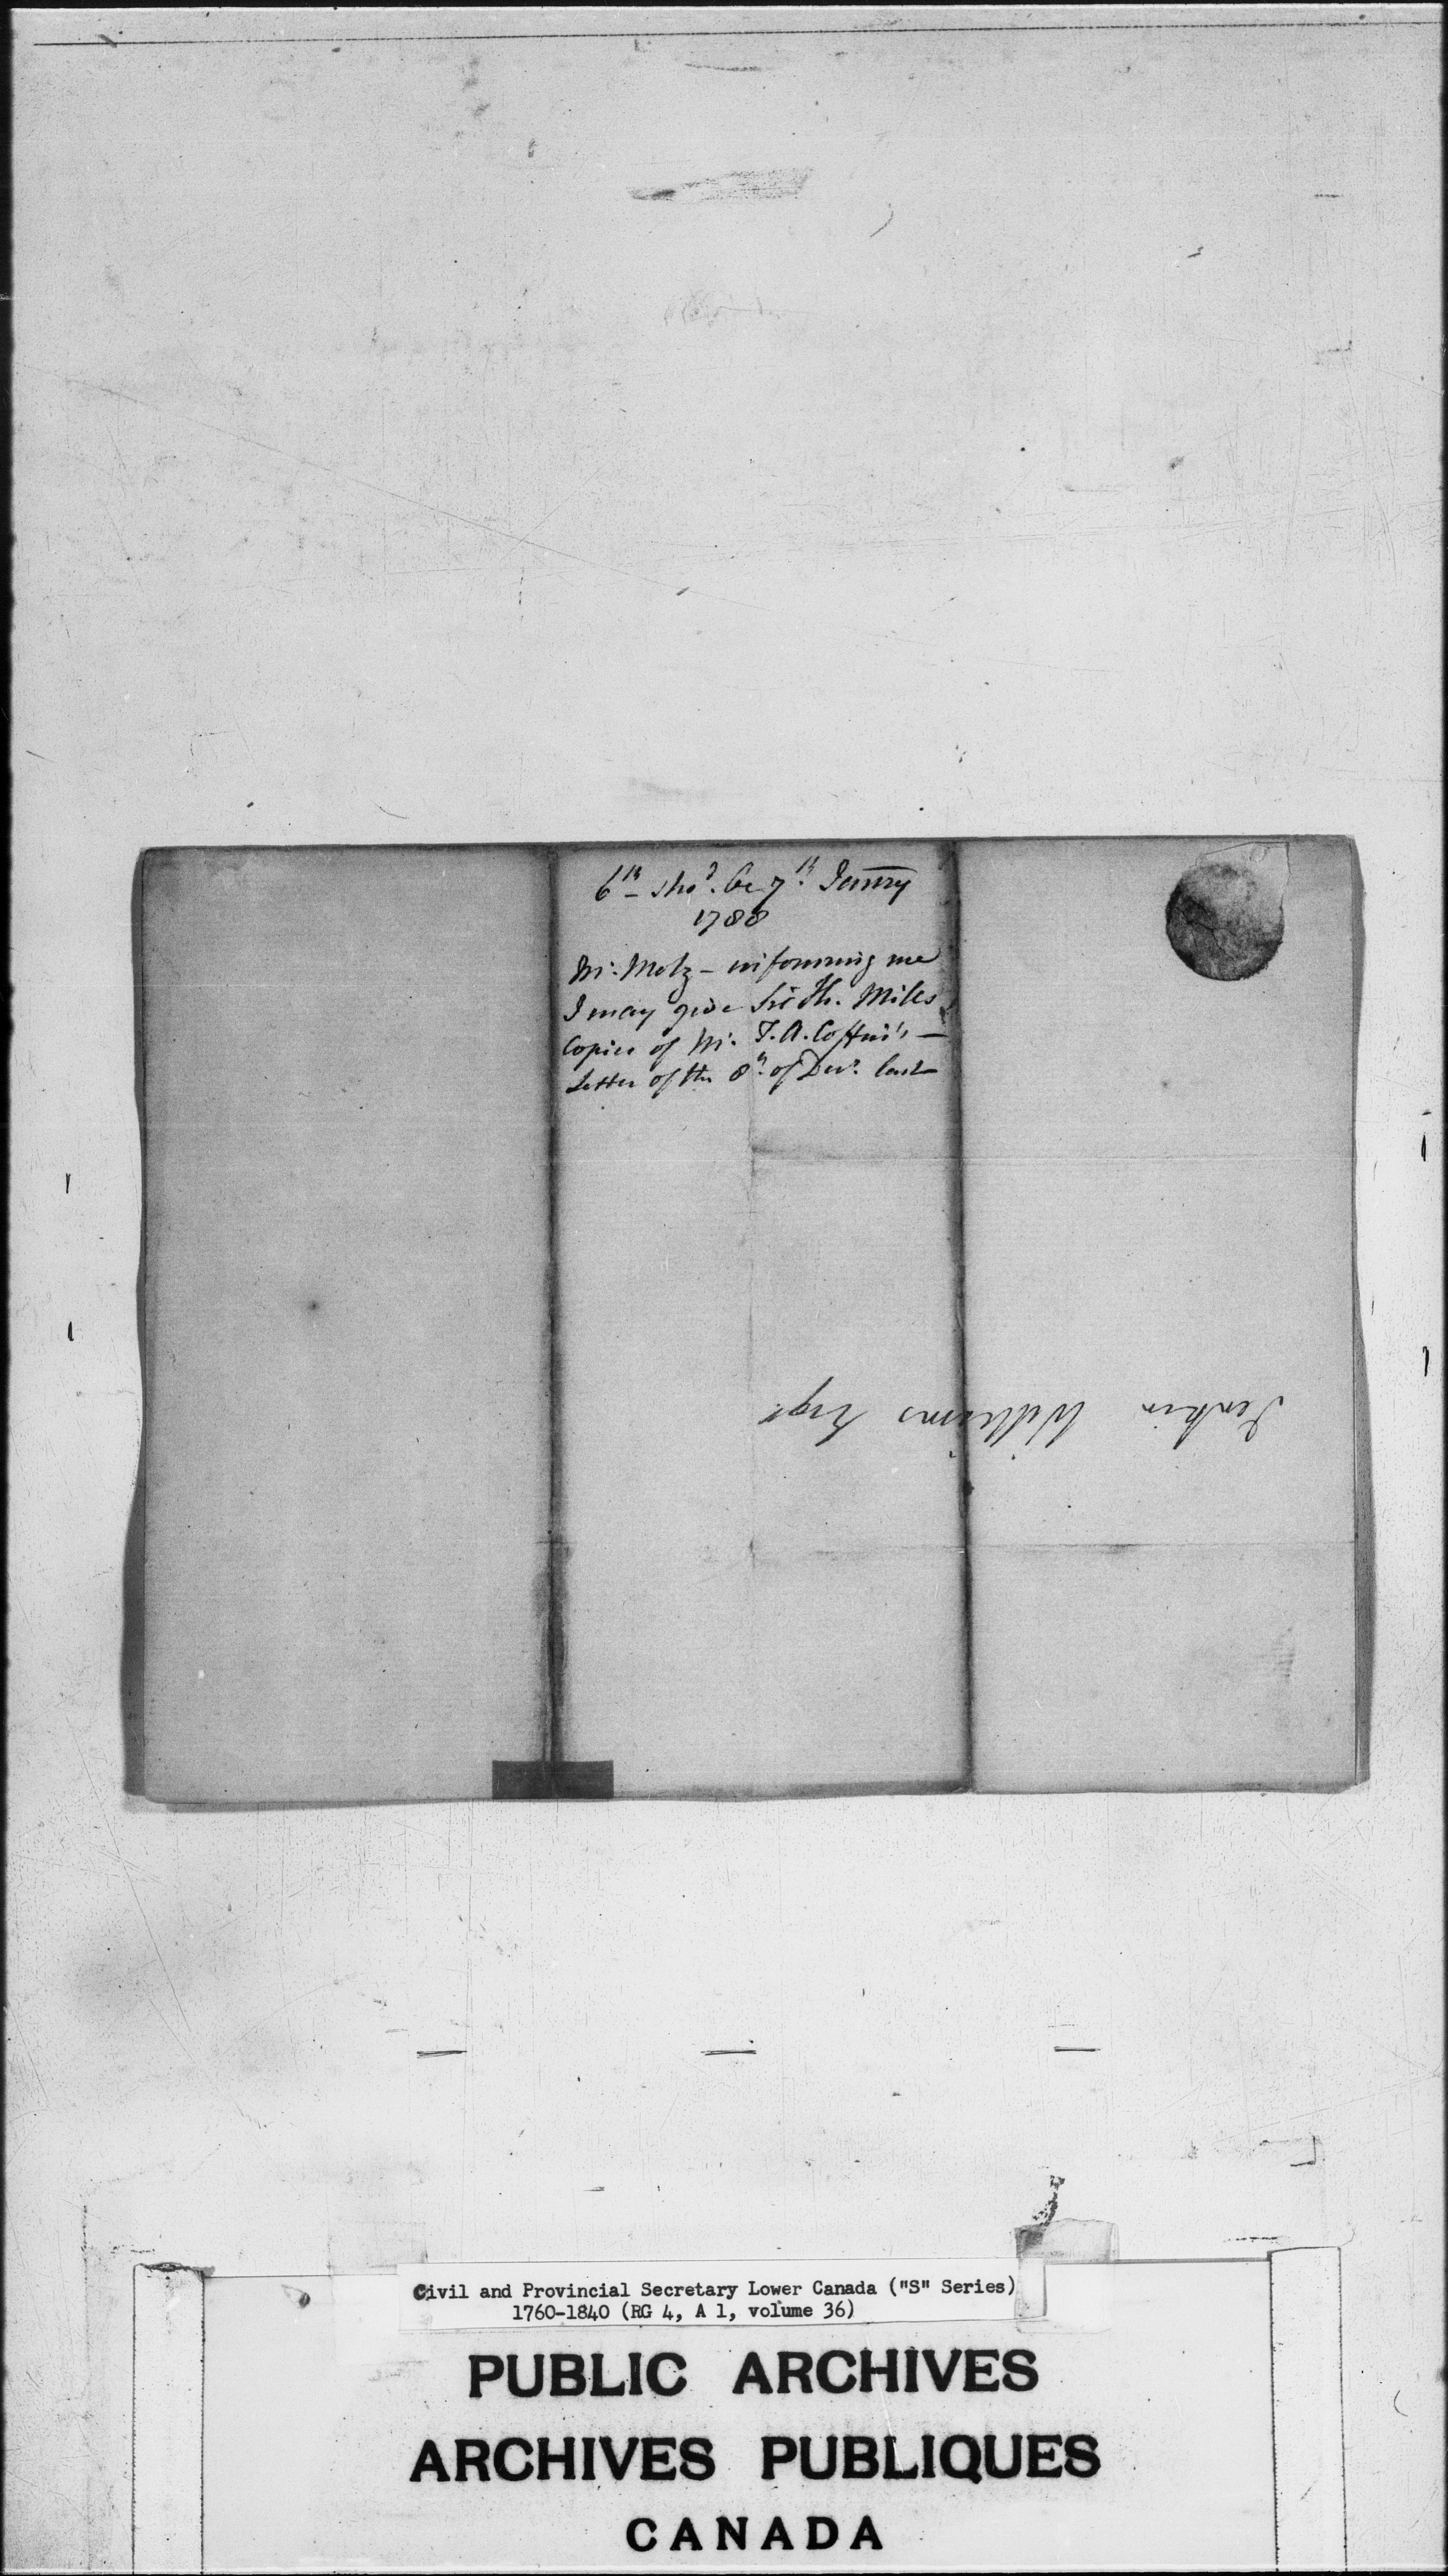 6th shod. be 7th. Janry
1788
Mr. Motz - informing me
I may give Sir Th. Mills
Copies of Mr. T. A. Coffin's —
Letter of the 8th. of Decr. last
Jenkin Williams Esqr.
Civil and Provincial Secretary Lower Canada ("S" Series)
1760-1840 (RG 4, A 1, volume 36)
PUBLIC ARCHIVES
ARCHIVES PUBLIQUES
CANADA